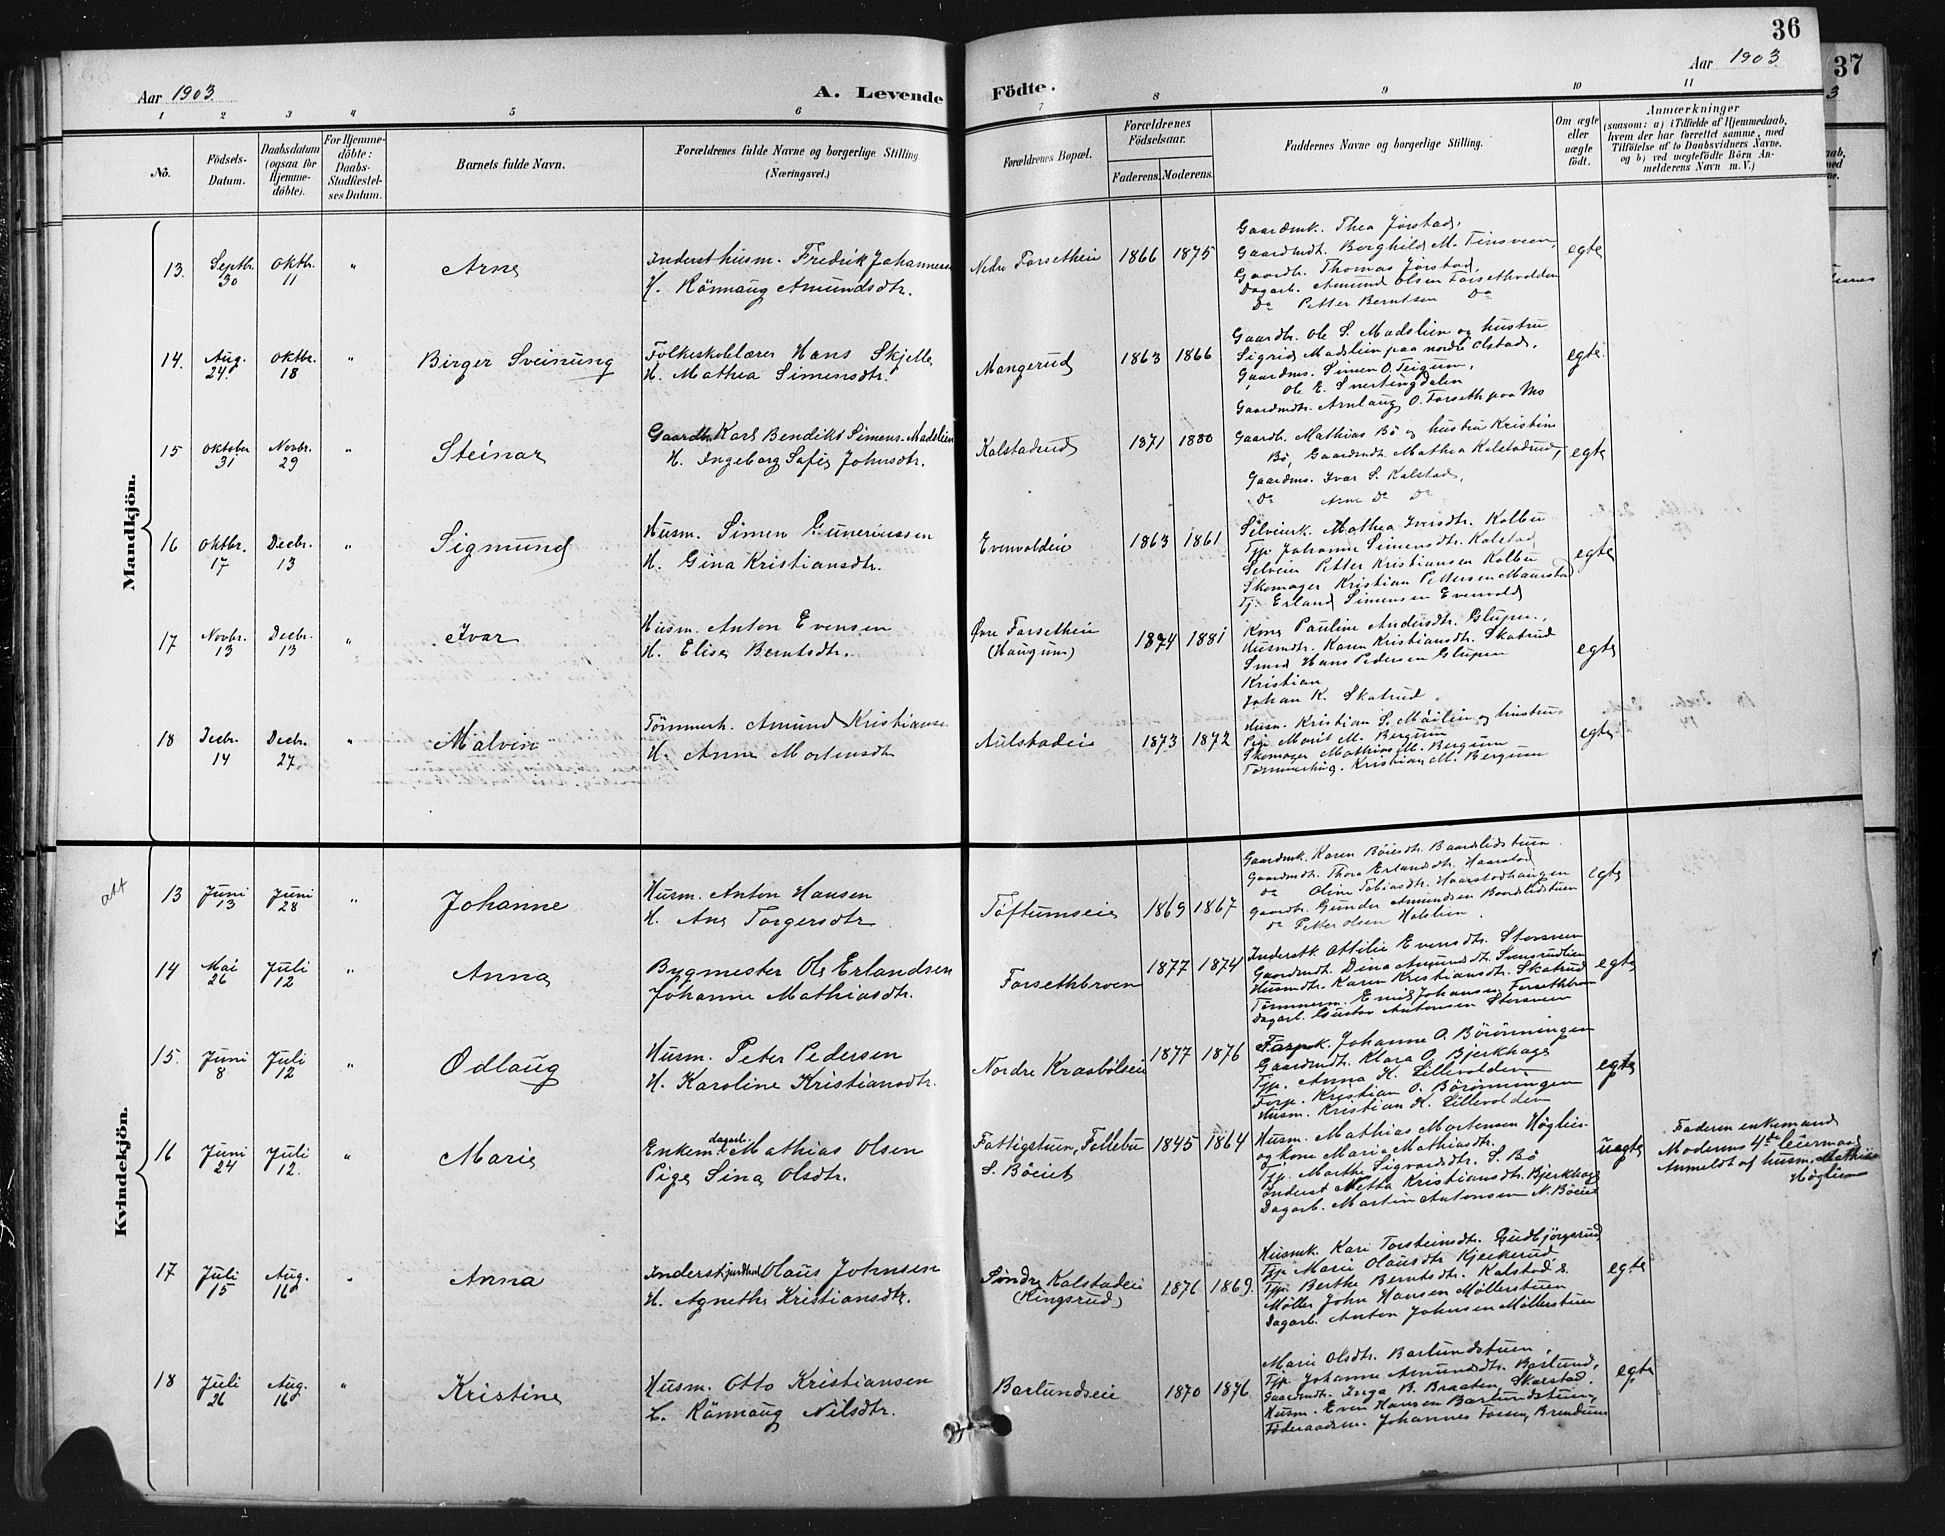 36
37
Aar 1903.
A. Levende Födte.
Aar 1903.
1 2 3 4 5 6 7 8 9 10 11
No.
Födsels-
Datum.
Daabsdatum
(ogsaa for
Hjemme-
döbte).
For Hjemme-
döbte:
Daabs-
Stadfæstel-
ses Datum.
Barnets fulde Navn.
Forældrenes fulde Navne og borgerlige Stilling
(Næringsvei.)
Forældrenes Bopæl.
Forældrenes
Födselsaar.
Faderens. Moderens.
Faddernes Navne og borgerlige Stilling.
Om ægte
eller
uægte
födt.
Anmærkninger
(saasom: a) i Tilfælde af Hjemmedaab,
hvem der har forrettet samme, med
Tilföielse af to Daabsvidners Navne.
og b) ved uægtefödte Börn An-
melderens Navn m. V.)
Mandkjön.
13. Septbr. 30 Oktbr. 11 " Arne
Inderst husm. Fredrik Johannesen
H. Rönnaug Amundsdtr.
Nedre Forsetheie 1866 1875
Gaardmk. Thea Jørstad,
Gaardmdt. Borghild M. Tinsveen,
Gaardb. Thomas Jørstad,
Dagarb. Amund Olsen Forsethvolden
Do Petter Berntsen Do
egte
14. Aug. 24. Oktbr. 18 " Birger Sveinung
Folkeskolelærer Hans Skjelle
H. Mathea Simensdtr.
Mangerud 1863 1866
Gaardbr. Ole S. Madslien og hustru
Sigrid Madslien paa nordre Olstad,
Gaardms. Simen O. Teigum,
Ole E. Snertingdalen
Gaardmdtr. Arnlaug O. Forseth paa Mo
egte
15 Oktober 31 Novbr. 29 " Steinar
Gaardb. Karl Bendikt Simens. Madslien
H. Ingeborg Sofie Johnsdtr.
Kalstadrud 1871 1880
Gaardb. Mathias Bö og hustru Kristine
Bö, Gaardmdt. Mathea Kalstadrud,
Gaardms. Ivar S. Kalstad,
Do Arne Do Do
egte
16 Oktbr. 17 Decbr. 13 " Sigmund
Husm. Simen Guneriussen
H. Gina Kristiansdtr.
Evenvoldeie 1863 1861
Selveierk. Mathea Iversdtr. Kolbu
Tjp. Johanne Simensdtr. Kalstad
Selveier Petter Kristiansen Kolbu
Skomager Kristian Pettersen Maurstad
Tj. Erland Simensen Evenvold
egte
17 Novbr. 13 Decbr. 13 " Ivar
Husm. Anton Evensen
H. Elise Berntsdtr.
Øvre Forsetheie
(Haugum) 1874 1881
Kone Pauline Andersdtr. Glupen,
Husmdtr. Karen Kristiansdtr. Skatrud
Smed Hans Pedersen Glupen
Kristian
Johan K. Skatrud.
egte
18 Decbr. 14 Decbr. 27 " Malvin
Tömmerh. Amund Kristianse.
H. Anne Mortensdt
Aulstadeie 1873 1872
Husm. Kristian S. Möilien og hustru
Pige Marit M. Bergum
Skomager Mathias M. Bergum
Tömmerhug. Kristian M. Bergum
egte
Kvindekjön.
att
13 Juni 13 Juni 28 " Johanne
Husm. Anton Hansen
H. Ane Torgersdtr.
Töftumseie 1869 1867
Gaardmk. Karen Böiesdtr. Baardslidstuen.
Gaardmdt. Thora Erlandsdtr. Haarstad
Do Oline Tobiasdtr. Haarstadhaugen
Gaardbr. Gunder Amundsen Baardslidstuen
Do Petter Olsen Holslien.
egte
14 Mai 26 Juli 12 " Anna
Bygmester Ole Erlandsen
Johanne Mathiasdtr.
Forsethbroen 1877 1874
Inderstk. Ottilie Evensdtr. Storsveen
Gaardmdt. Dina Amundsdt. Svensrudlien
Husmdtr. Karen Kristiansdtr. Skatrud
Tömmerm. Emil Johansen Forsethbroen
Dagarb. Gustav Antonsen Storsveen
egte
15. Juni 8 Juli 12 " Odlaug
Husm. Peter Pedersen
H. Karoline Kristiansdtr.
Nordre Kraabölseie 1877 1876
Forpk. Johanne O. Börönningen
Gaardmdt. Klara O. Bjerkhage
Tjp. Anna K. Lillevolden
Forp. Kristian O. Börönningen
Husm. Kristian K. Lillevolden
egte
16 Juni 24 Juli 12. " Marie
Enkem. dagarb. Mathias Olsen
Pige Sina Olsdtr.
Fattigstuen, Follebu
S. Böeiet 1845 1864
Husm. Mathias Mortensen Höglien
og kone Marie Mathiasdtr.
Tjp. Marthe Sigvardsdtr. S. Bö
Inderst Metta Kristiansdtr. Bjerkhage
Dagarb. Martin Antonsen N. Böeie
uegte
Faderen enkemand
Moderens 4de leiermaal
Anmeldt af husm. Mathias
Höglien
17 Juli 15 Aug. 16 " Anna
Inderst jordbrd Olaus Johnsen
H. Agnethe Kristiansdtr.
Söndre Kalstadeie
(Ringsrud) 1876 1869.
Husmk. Kari Torsteinsdtr. Gudbjörgsrud
Tjp. Marie Olausdtr. Kjeckerud
Tjp. Berthe Berntsdtr. Kalstad S.
Möller John Hansen Möllerstuen
Dagarb. Anton Johnsen Möllerstuen
egte
18 Juli 26 Aug. 16 " Kristine
Husm. Otto Kristiansen
H. Rönnaug Nilsdtr.
Barlundseie 1870 1876
Marie Olsdtr. Barlundstuen,
Tjp. Johanne Amundsdtr. Barlund,
Gaardmdtr. Inga B. Braaten, Skarstad.
Husm. Even Hansen Barlundstuen,
Föderaadsm. Johannes Fossen, Brendum
egte